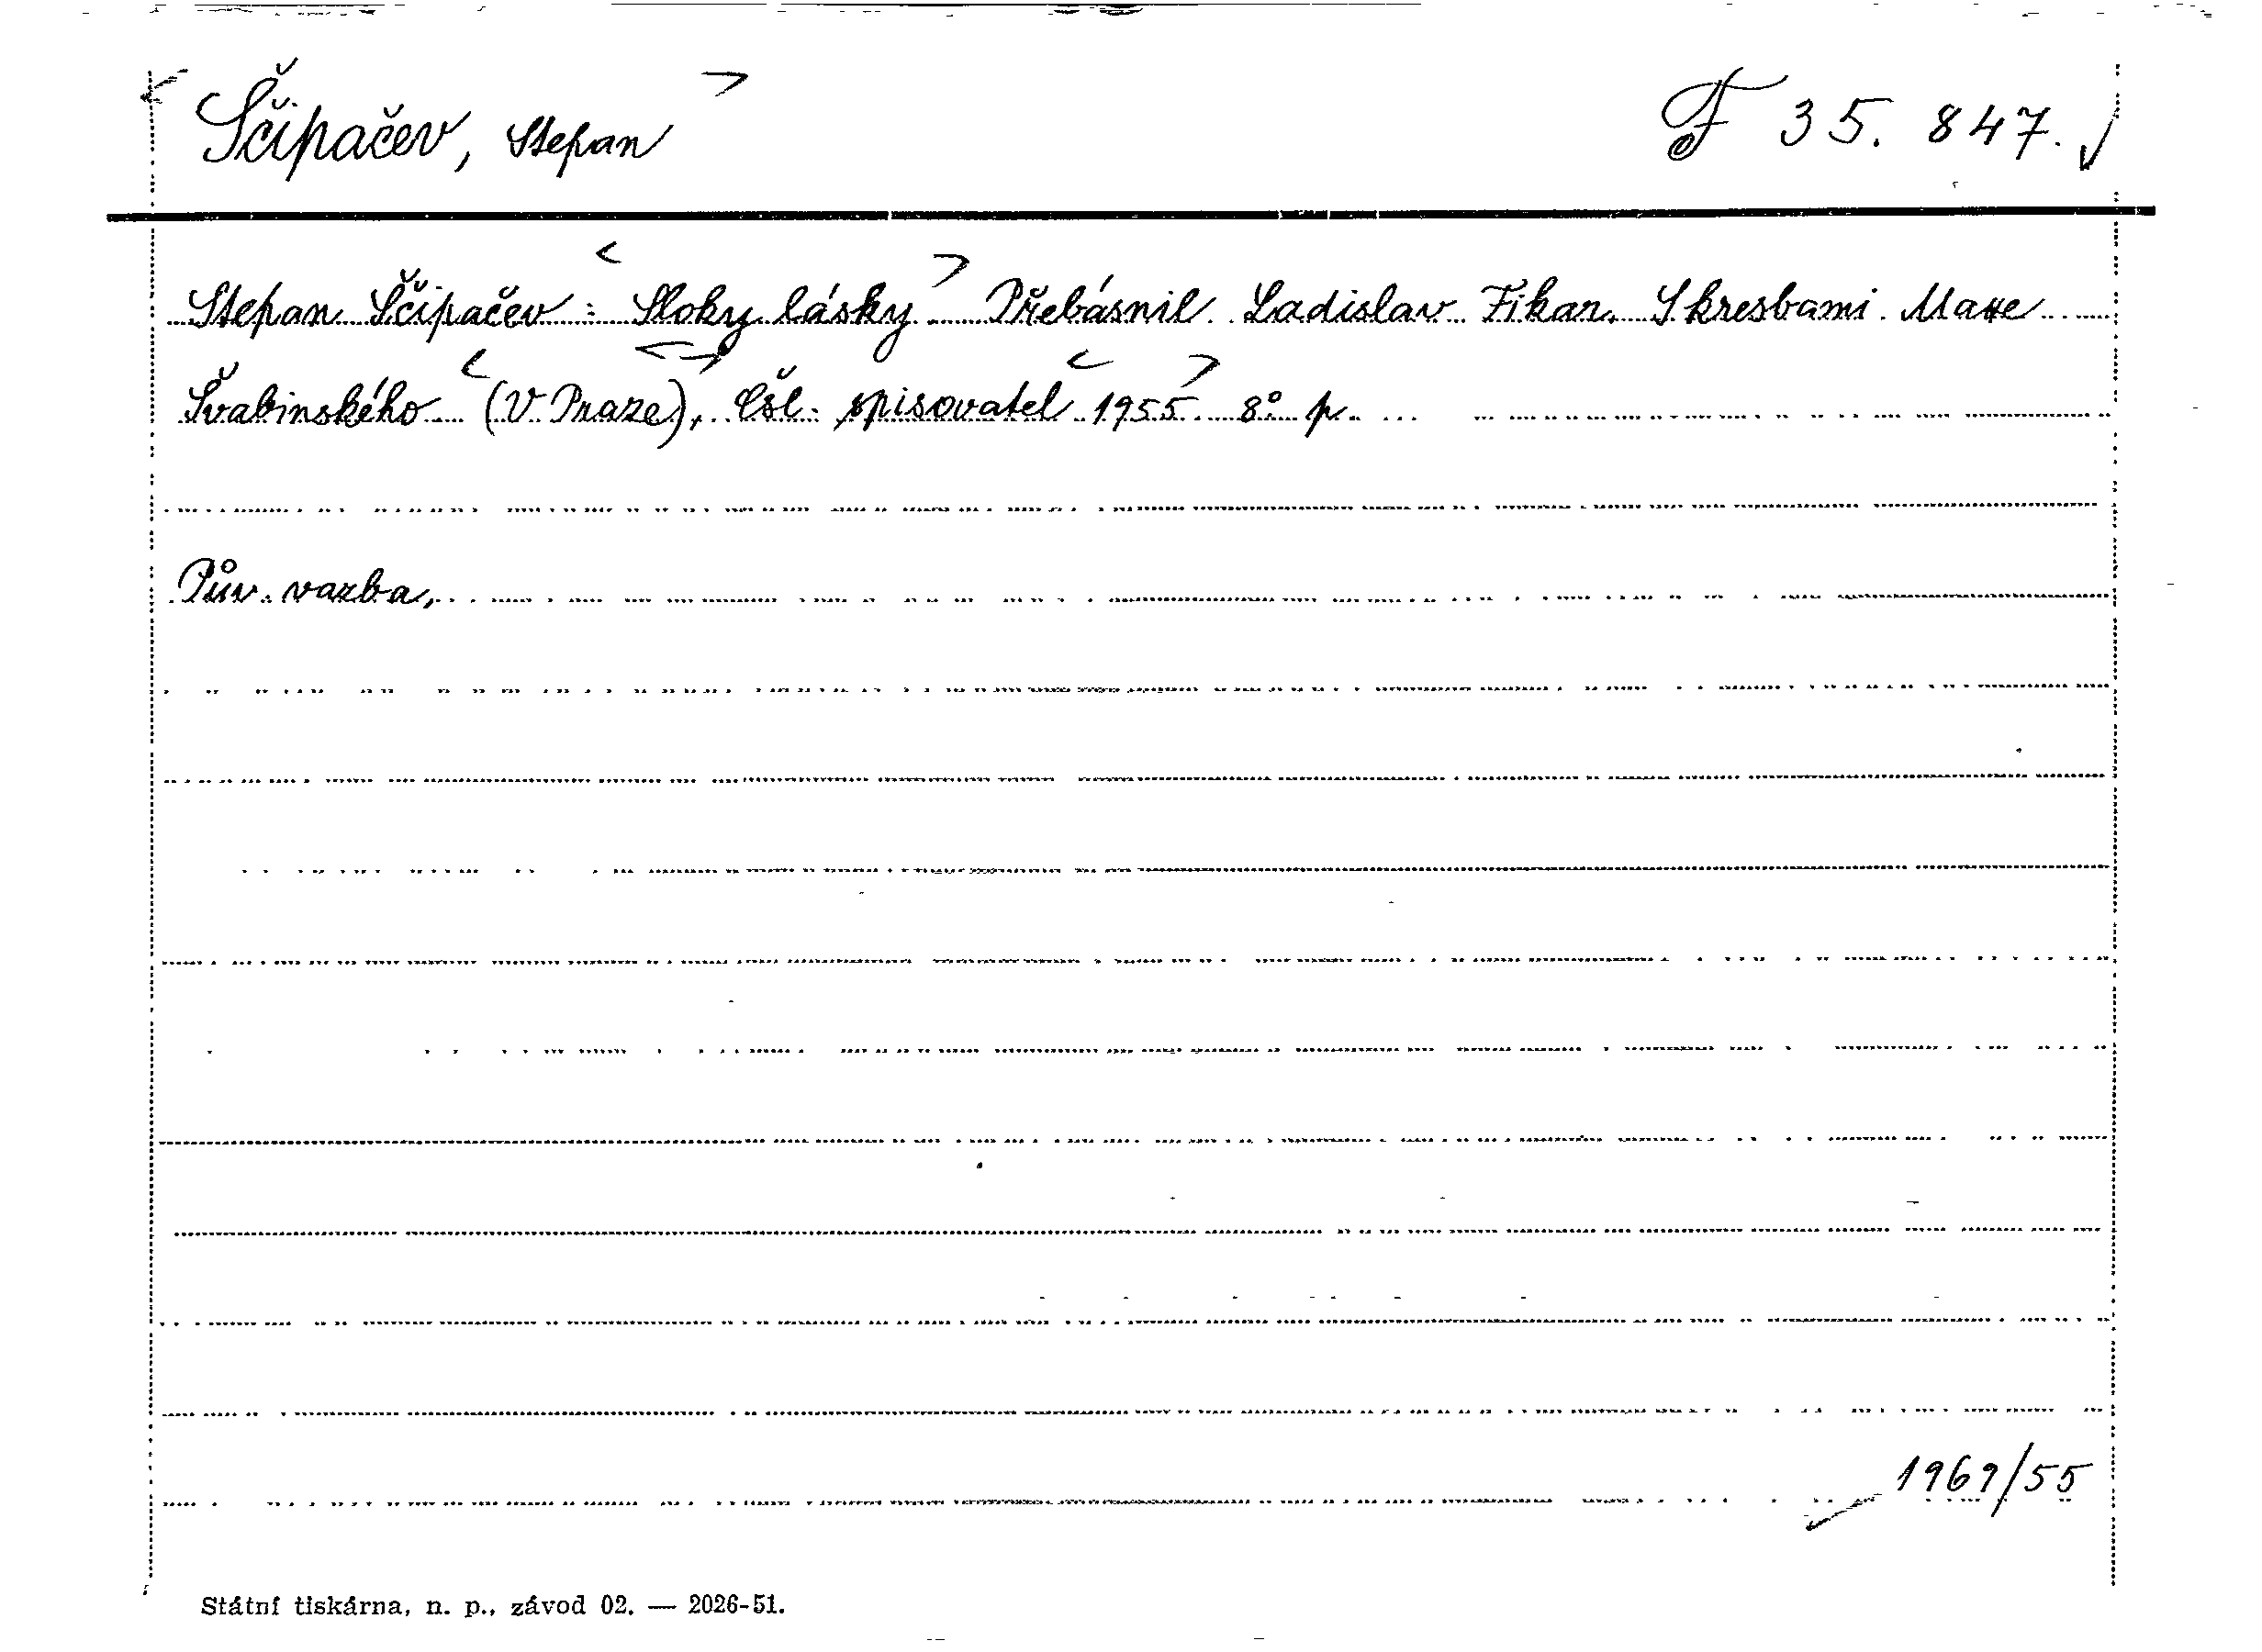 Ščipačev, Stepan F 35.847.
Stepan Ščipačev: Sloky lásky. Přebásnil Ladislav Fikar. S kresbami Maxe
Švabinského (V Praze), Čsl. spisovatel 1955. 8° p.
Pův. vazba.
1969/55
Státní tiskárna, n. p., závod 02. — 2026-51.